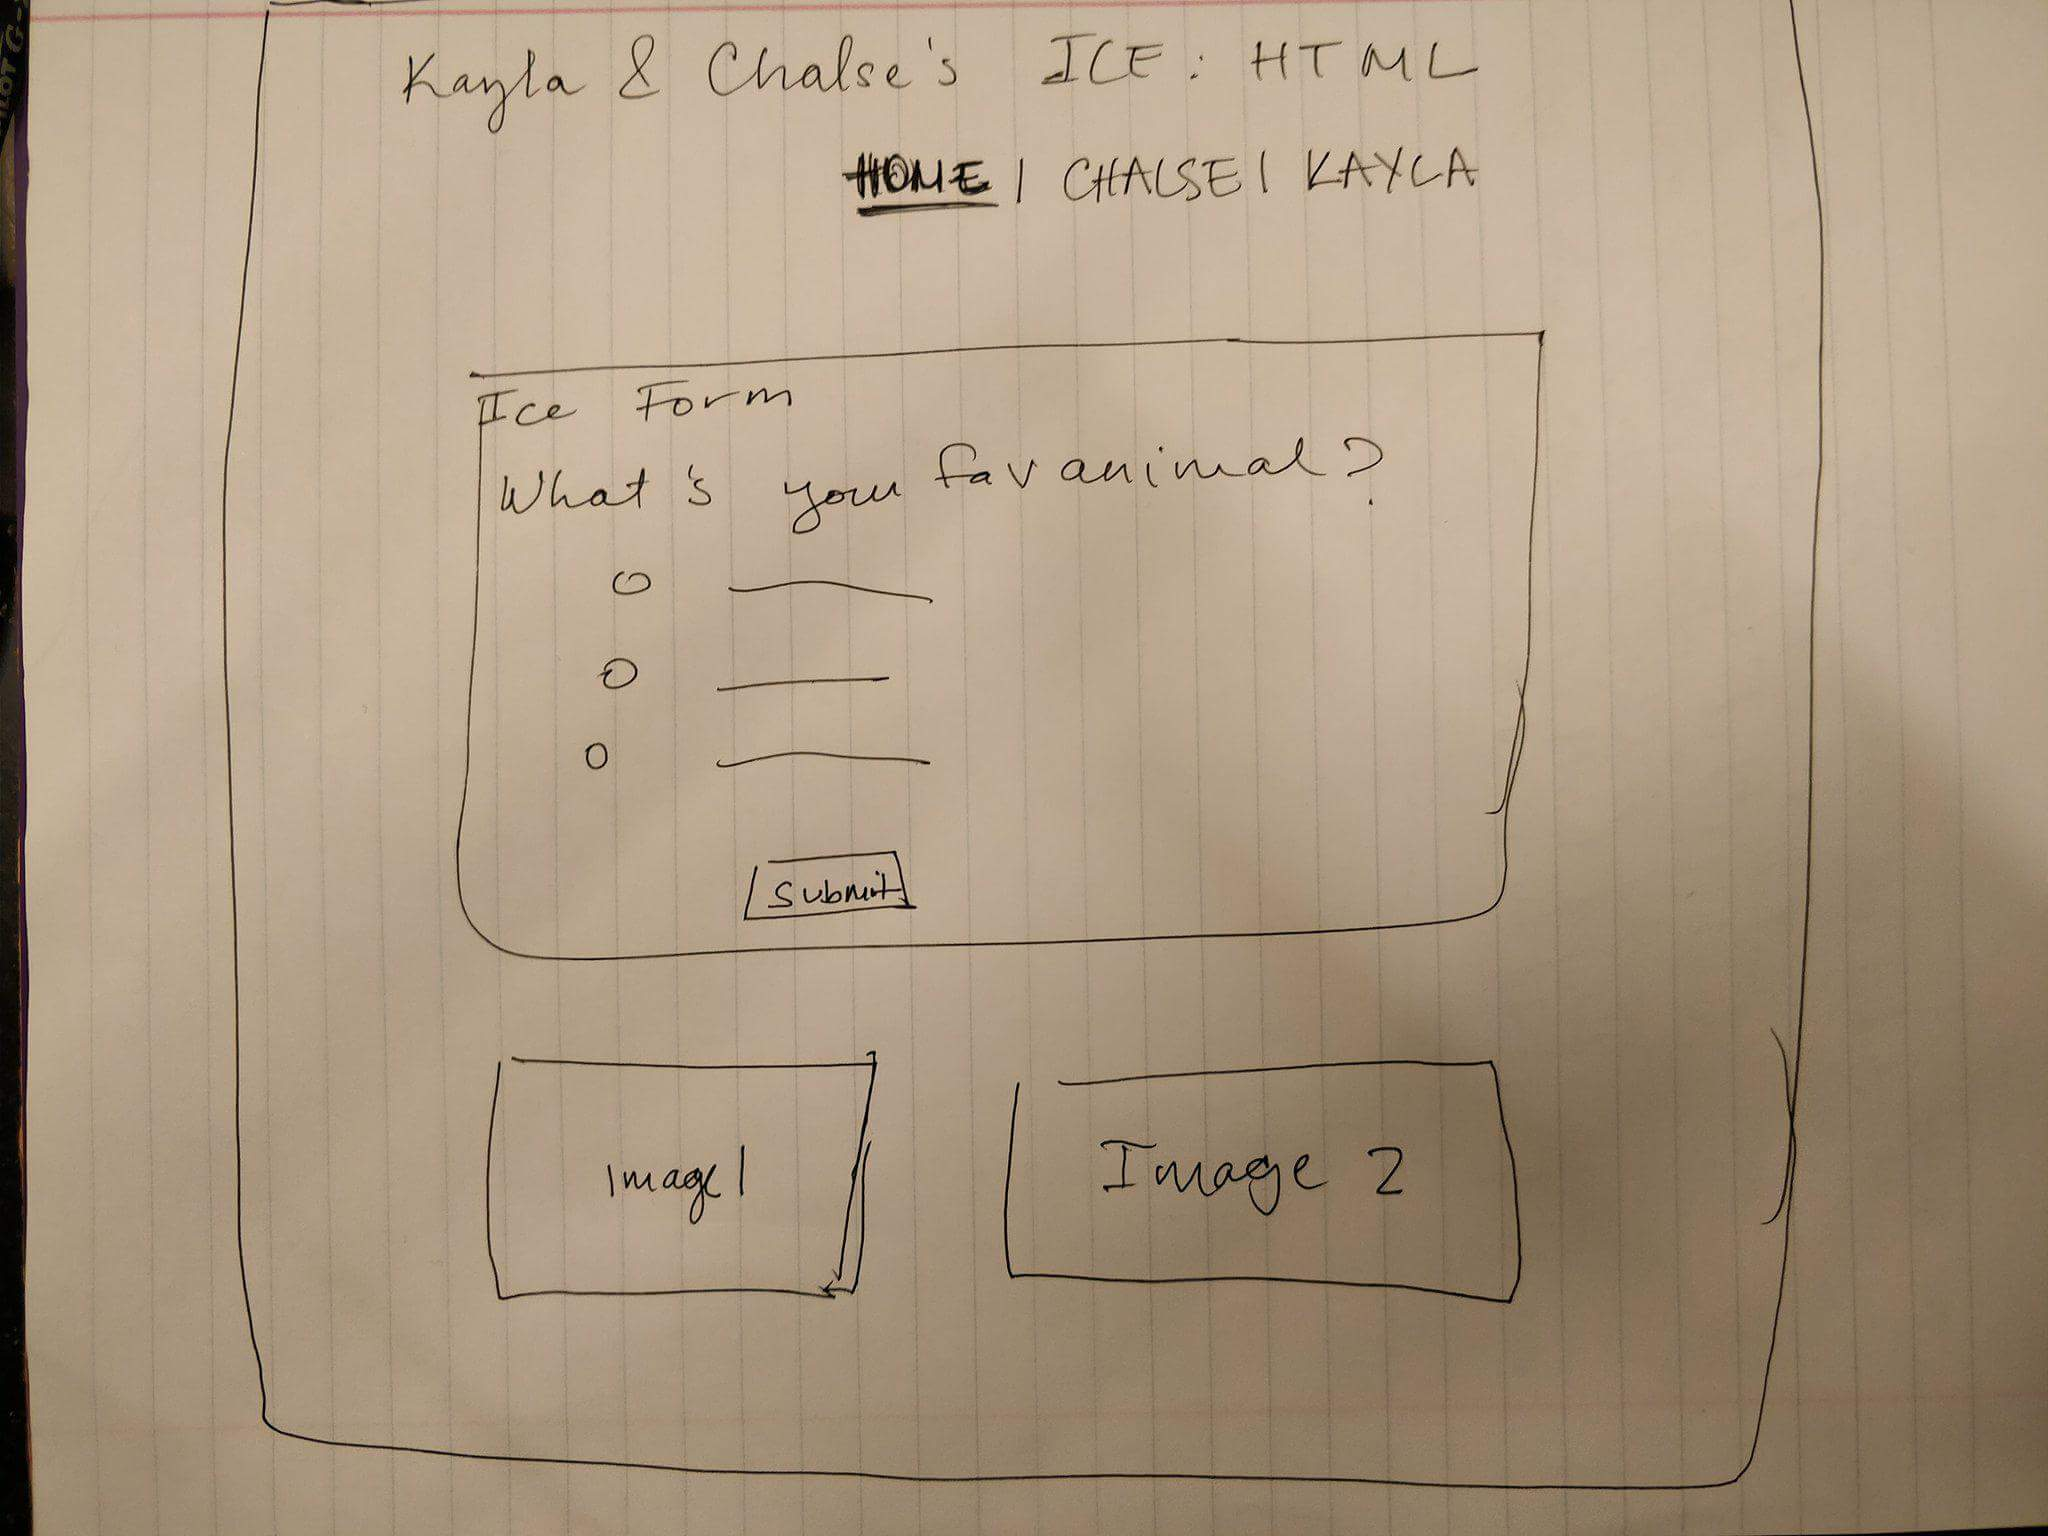 Kayla & Chalse's ICE: HTML
HOME | CHALSE | KAYLA
Ice Form
What's your fav animal?
Submit
Image 1
Image 2